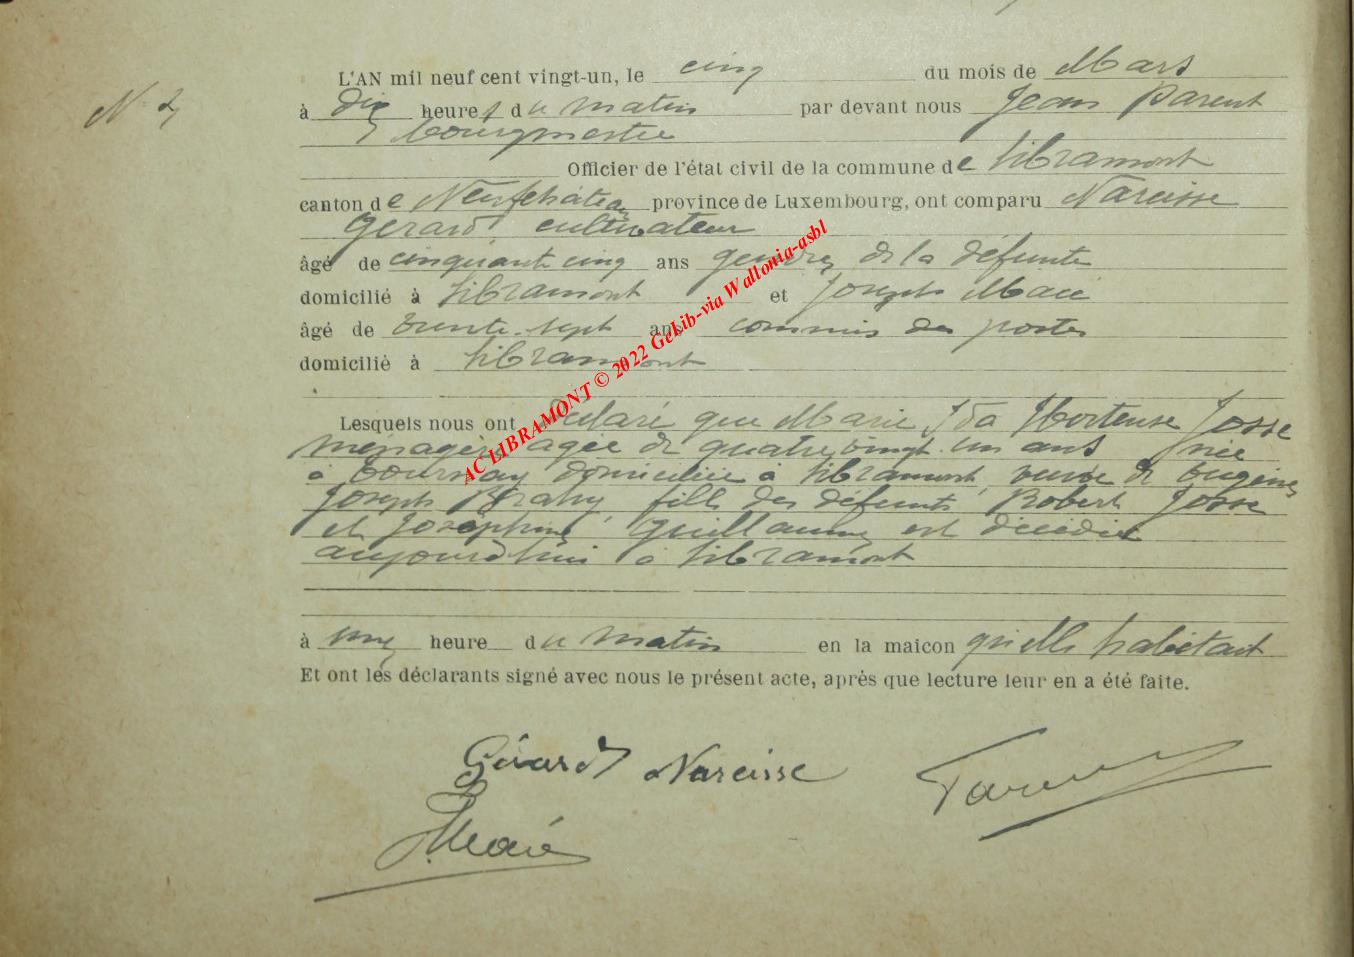 L'AN mil neuf cent vingt-un, le cinq du mois de Mars
à dix heures du matin par devant nous Jean Parent
bourgmestre
Officier de l'état civil de la commune de Libramont
canton de Neufchâteau province de Luxembourg, ont comparu Narcisse
Gerard cultivateur
âgé de cinquante cinq ans gendre de la défunte
domicilié à Libramont et Joseph Marié
âgé de trente-sept ans commis des postes
domicilié à Libramont
Lesquels nous ont déclaré que Marie Ida Hortense Josse
ménagère agée de quatre vingt un ans née
à Tournay domiciliée à Libramont, veuve de Eugène
Joseph Brahy fille des défunts Robert Josse
et Joséphine Guillaume est décédée
aujourd'hui à Libramont
à une heure du matin en la maicon qu'elle habitait
Et ont les déclarants signé avec nous le présent acte, après que lecture leur en a été faite.
Gérard Narcisse
Parent
AC LIBRAMONT © 2022 GeLib-via Wallonia-asbl